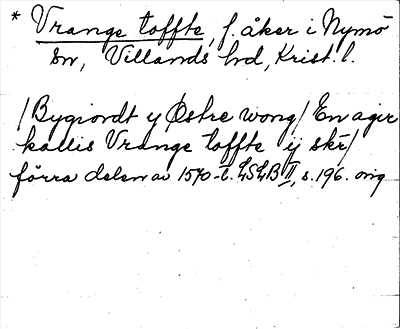 * Vrange toffte, f. åker i Nymö
sn, Villands hd, Krist. l.
/Bygiordt y Østre wong/ En ager
kallis Vrange toffte ij skr/
förra delen av 1570-t. LSLB II, s. 196. orig